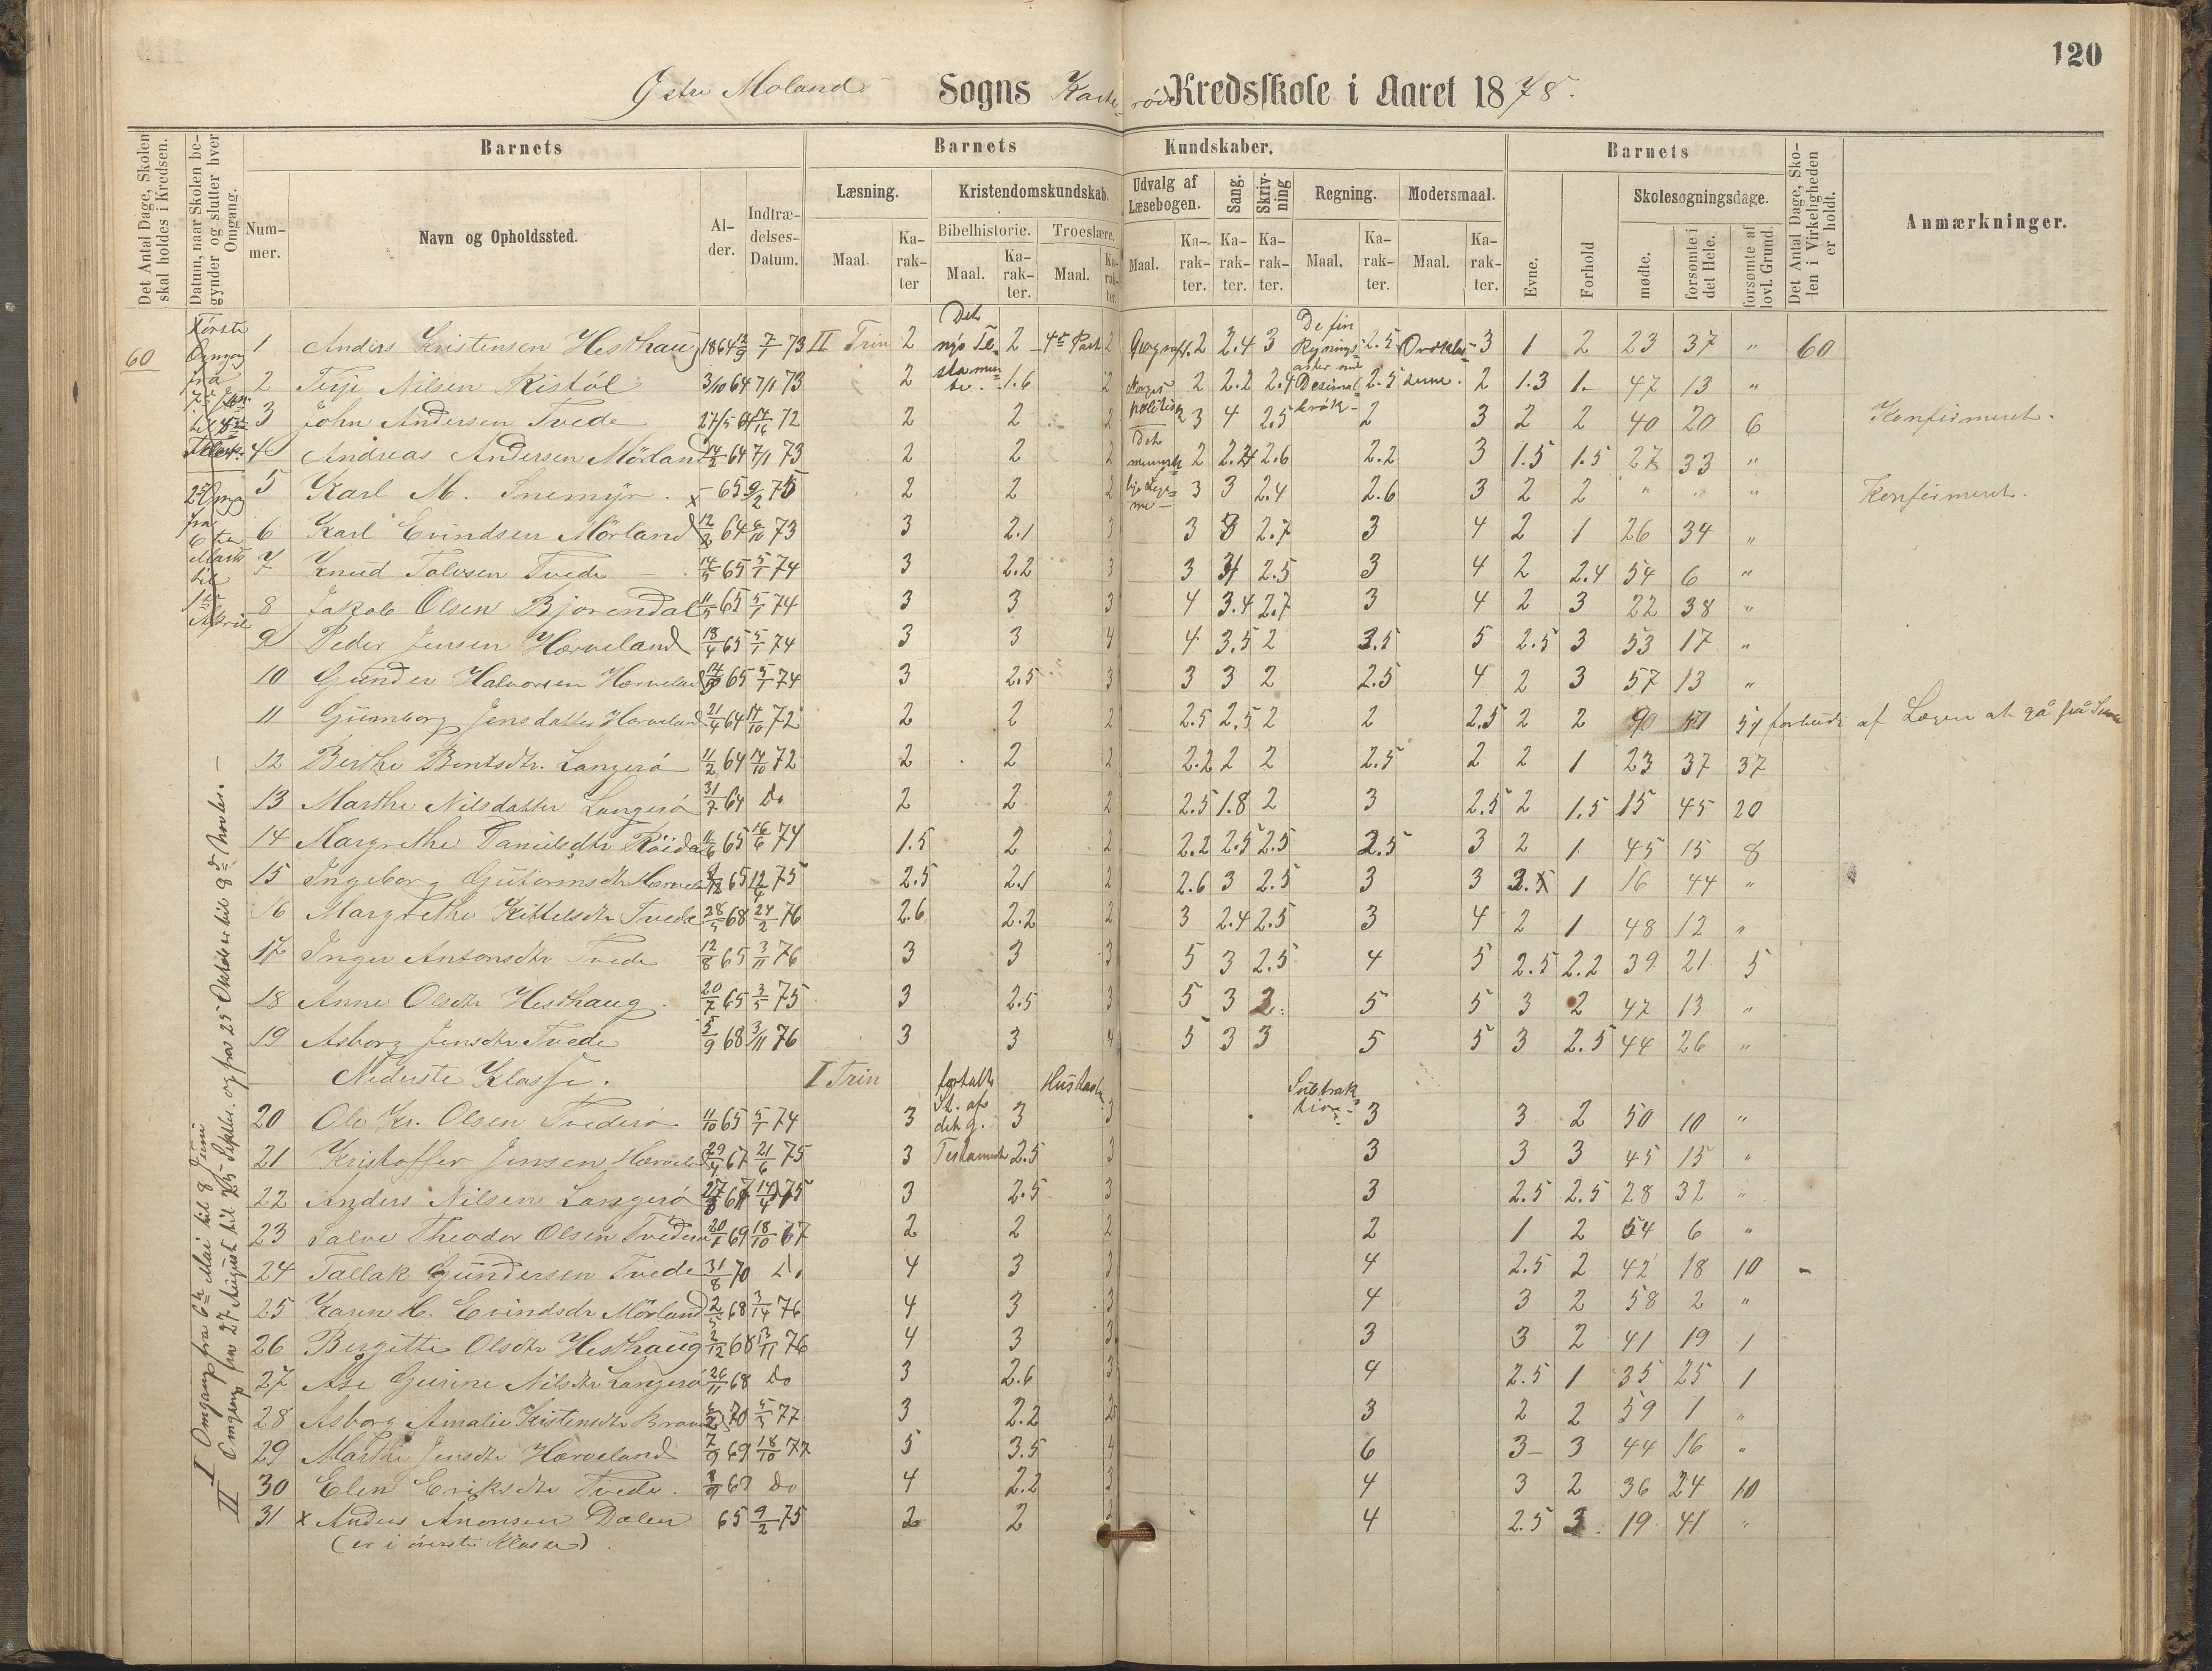 120
Østre Moland Sogns Kaste rød Kredsskole i Aaret 1878.
Det Antal Dage, Skolen skal holdes i Kredsen.
Datum, naar Skolen begynder og slutter hver Omgang.
Barnets
Nummer.
Navn og Opholdssted.
Alder.
Indtrædelses-Datum.
Barnets Kundskaber.
Læsning.
Kristendomskundskab.
Bibelhistorie.
Troeslære.
Udvalg af Læsebogen.
Sang.
Skrivning
Regning.
Modersmaal.
Maal.
Karakter.
Barnets
Evne.
Forhold
Skolesøgningsdage.
mødte.
forsømte i det Hele.
forsømte af lovl. Grund.
Det Antal Dage, Skolen i Virkeligheden er holdt.
Anmærkninger.
60
Første Omgang fra 7de Jan. til
2den Omgang fra 6te Marts til 1ste April
I Omgang fra 6te Mai til 8 Juni
II Omgang fra 27 August til 25 Septbr. og fra 25 Oktober til 8de Novbr. —
1 Anders Kristensen Hesthaug 1864 12/9 7/1 73 II Trin 2 Det nye Testamente 2 4de Part 2 Geografi 2 2.4 3 2.5 3 1 2 23 37 " 60
2 Terje Nilsen Ristöl 3/10 64 7/1 73 2 1.6 2 Norges 2 2.2 2.4 Desimal 2.5 2 1.3 1. 47 13 "
3 John Andersen Tvede 27/5 64 14/16 72 2 2 2 politisk 3 4 2.5 brök- 2 3 2 2 40 20 6 Konfirmeret.
4 Andreas Andersen Mörland 14/2 64 7/1 73 2 2 2 Det menneske 2 2.4 2.6 2.2 3 1.5 1.5 27 33 "
5 Karl M. Snemyr. x - 65 9/2 75 2 2 2 lige Lege me - 3 3 2.4 2.6 3 2 2 " " " Konfirmeret.
6 Karl Evindsen Mörland 12/2 64 6/10 73 3 2.1 3 3 3 2.7 3 4 2 1 26 34 "
7 Knud Tolvsen Tvede 14/5 65 5/1 74 3 2.2 3 3 4 2.5 3 4 2 2.4 54 6 "
8 Jakob Olsen Bjorendal 11/5 65 5/1 74 3 3 3 4 3.4 2.7 3 4 2 3 22 38 "
9 Peder Jensen Hærveland 18/4 65 5/1 74 3 3 4 4 3.5 2 3.5 5 2.5 3 53 17 "
10 Gunder Halvorsen Hærveland 14/9 65 5/1 74 3 2.5 3 3 3 2 2.5 4 2 3 57 13 "
11 Gunnborg Jensdatter Hærveland 21/4 64 14/10 72 2 2 2 2.5 2.5 2 2 2.5 2 2 forbudt af Lægen at gå på
12 Birthe Berntsdtr. Langerö 11/2 64 14/10 72 2 2 2 2.2 2 2 2.5 2 2 1 23 37 37
13 Marthe Nilsdatter Langerö 31/7 64 Do 2 2 2 2.5 1.8 2 3 2.5 2 1.5 15 45 20
14 Margrethe Danielsdtr 11/6 65 16/6 74 1.5 2 2 2.2 2.5 2.5 2.5 3 2 1 45 15 8
15 Ingeborg Gutormsdtr Hærveland 9/12 65 12/4 75 2.5 2.1 2 2.6 3 2.5 3 3 1 16 44 "
16 Margrethe Kittelsdtr Tvede 28/5 68 24/2 76 2.6 2.2 2 3 2.4 2.5 3 4 2 1 48 12 "
17 Inger Antonsdtr Tvede 12/8 65 3/11 76 3 3 3 5 3 2.5 4 5 2.5 2.2 39 21 5
18 Anne Olsdtr Hesthaug. 20/7 65 3/5 75 3 2.5 3 5 3 2. 5 5 3 2 47 13 "
19 Asborg Jensdtr Tvede 5/9 68 3/11 76 3 3 4 5 3 3 5 5 3 2.5 44 26 "
Nederste Klasse. I Trin fortalte St. af det g. Testamente Subtraktion
20 Ole Kr. Olsen Tvederö 11/10 65 5/1 74 3 3 3 3 3 2 50 10 "
21 Kristoffer Jensen Hærveland 29/4 67 21/6 75 3 2.5 3 3 3 3 45 15 "
22 Anders Nilsen Langerö 14/4 75 3 2.5 3 3 2.5 2.5 28 32 "
23 Salve Theodor Olsen Tvederö 20/1 69 18/10 77 2 2 2 2 1 2 54 6 "
24 Tallak Gundersen Tvede 31/8 70 Do 4 3 3 4 2.5 2 42 18 10
25 Karen H. Evindsdr Mörland 2/5 68 3/14 76 4 3 3 4 3 2 58 2 "
26 Bergitte Olsdtr Hesthaug 2/12 68 13/11 76 4 3 3 3 3 2 41 19 1
27 Ase Gurine Nilsdtr Langerö 26/11 68 Do 3 2.6 3 4 2.5 1 35 25 1
28 Asborg Amalie Kristensdtr 70 5/5 77 3 2.2 2 3 2 2 59 1 "
29 Marthe Jensdtr Hærveland 7/9 69 18/10 77 5 3.5 4 6 3- 3 44 16 "
30 Elen Eriksdtr Tvede. 69 Do 4 2.2 3 4 3 2 36 24 10
31 x Anders Aronsen Dalen 65 9/2 75 2 2 2 4 2.5 3 19 41 "
(er i øverste Klasse)